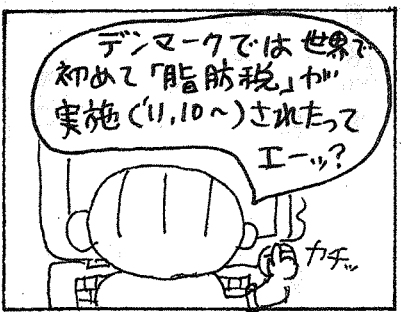 デンマークでは世界で
初めて「脂肪税」が
実施('11,10〜)されたって
エーッ?
カチッ